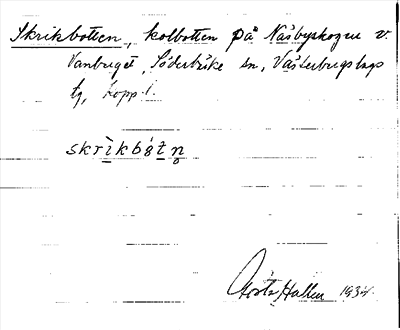 Skrikbotten, kolbotten på Näsbyskogen v.
Vanbruget, Söderbärke sn, Västerbergslags
tg, Kopp. l.
skrikbòtn̥
Gösta Hallen 1934.